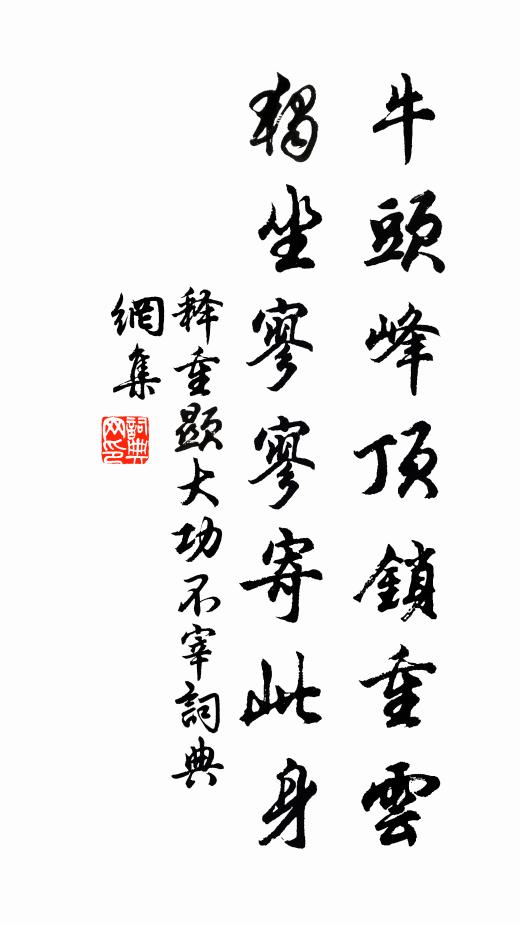 牛頭峰頂鎖重雲
獨坐寥寥寄此身
释重顯大功不宰詞典
網集
詞典網印